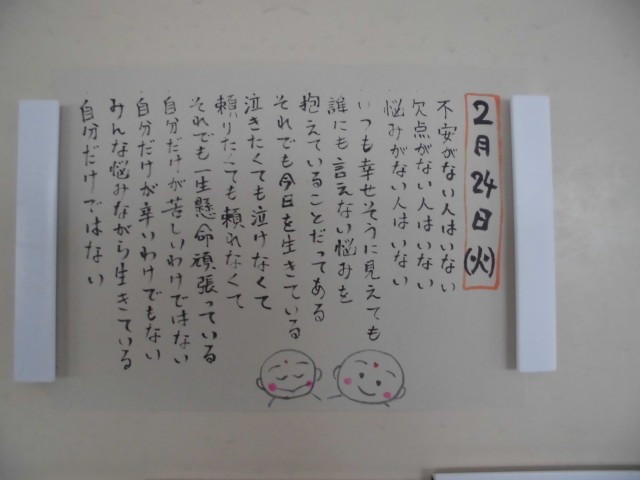 2月24日(火)
不安がない人はいない
欠点がない人はいない
悩みがない人はいない
いつも幸せそうに見えても
誰にも言えない悩みを
抱えていることだってある
それでも今日を生きている
泣きたくても泣けなくて
頼りたくても頼れなくて
それでも一生懸命頑張っている
自分だけが苦しいわけではない
自分だけが辛いわけでもない
みんな悩みながら生きている
自分だけではない